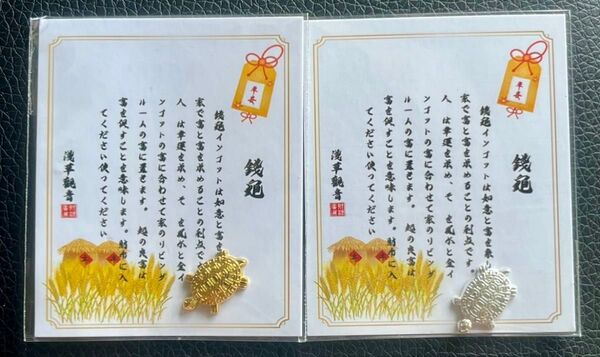 平安
錢龜
錢龜インゴットは如意と富を
家で富と富を求めることの利点です。
人 は幸運を求め、そ は風水と金イ
ンゴットの富に合わせて家のリビング
ルームの富に置きます。 超の良富は
富を促すことを意味します。財布に入
れてください使ってください
淺草觀音
平安
錢龜
錢龜インゴットは如意と富を
家で富と富を求めることの利点です。
人 は幸運を求め、そ は風水と金イ
ンゴットの富に合わせて家のリビング
ルームの富に置きます。 超の良富は
富を促すことを意味します。財布に入
てください使ってください
淺草觀音